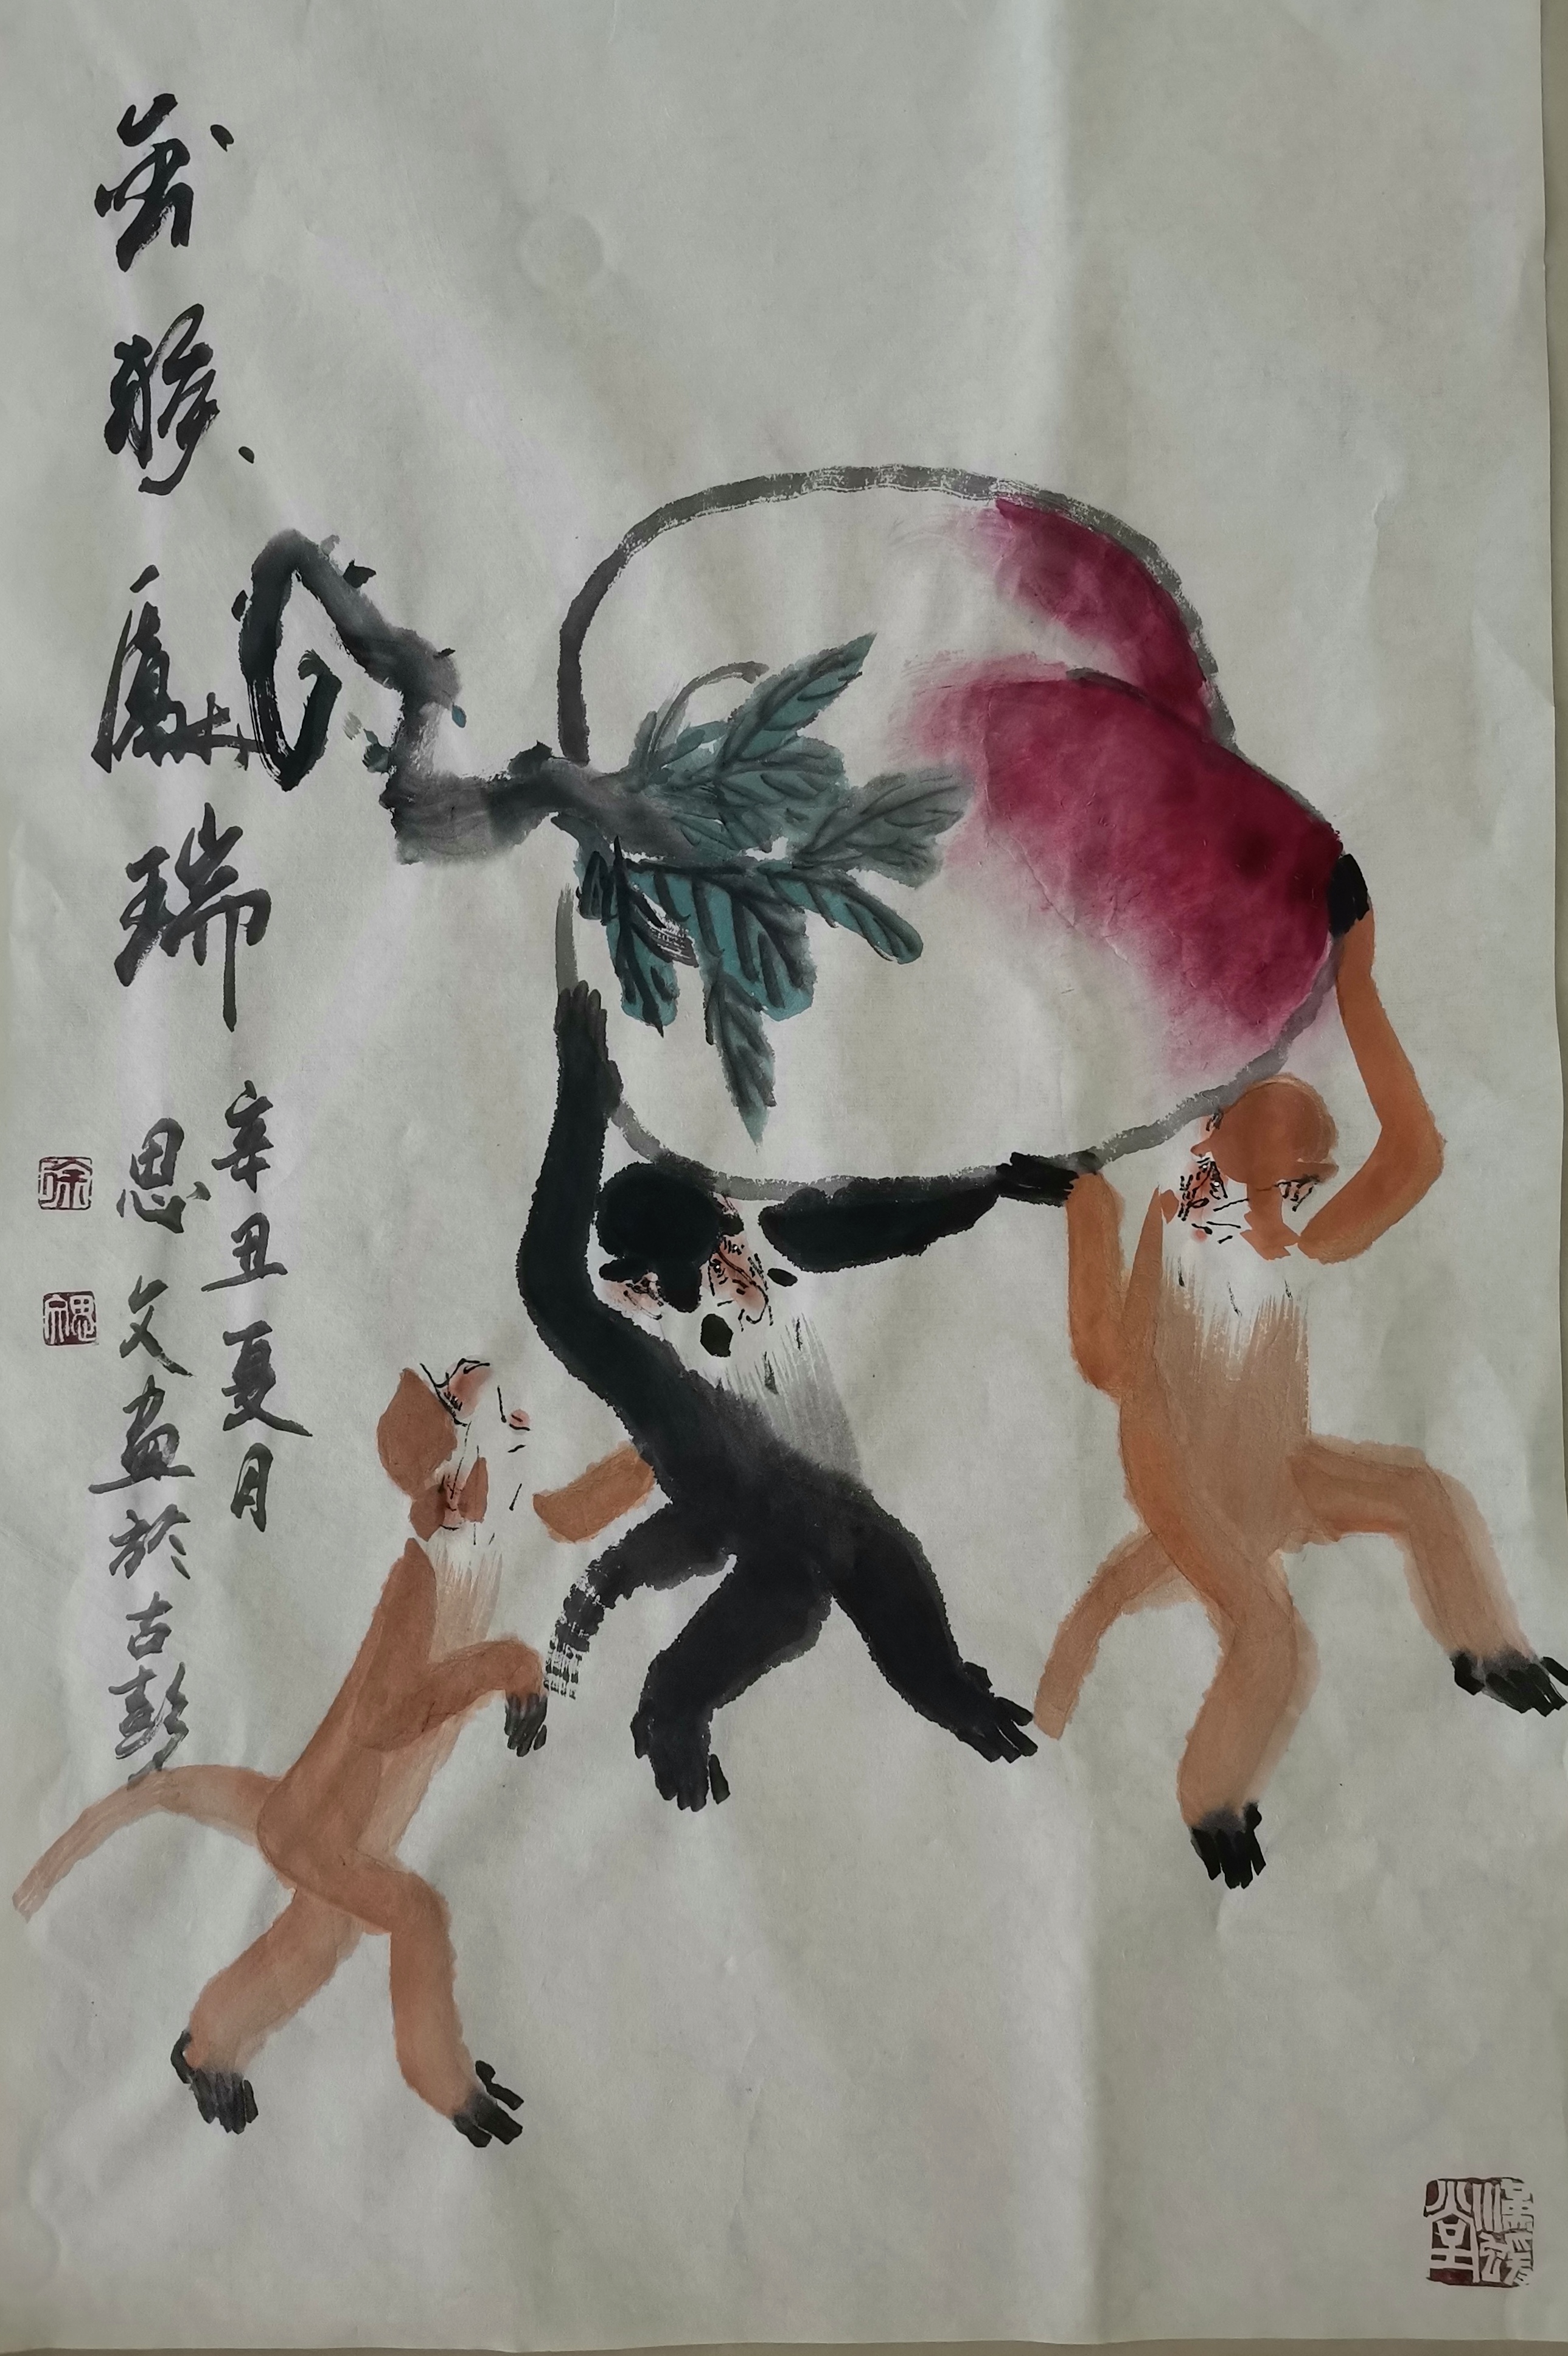 猴獻瑞
辛丑夏月
思文畫於古彭
徐